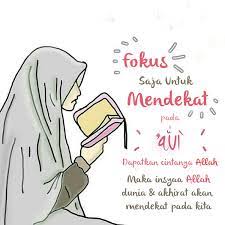 Fokus
Saja Untuk
Mendekat
pada
Dapatkan cintanya Allah
Maka insyaa Allah
dunia & akhirat akan
mendekat pada kita